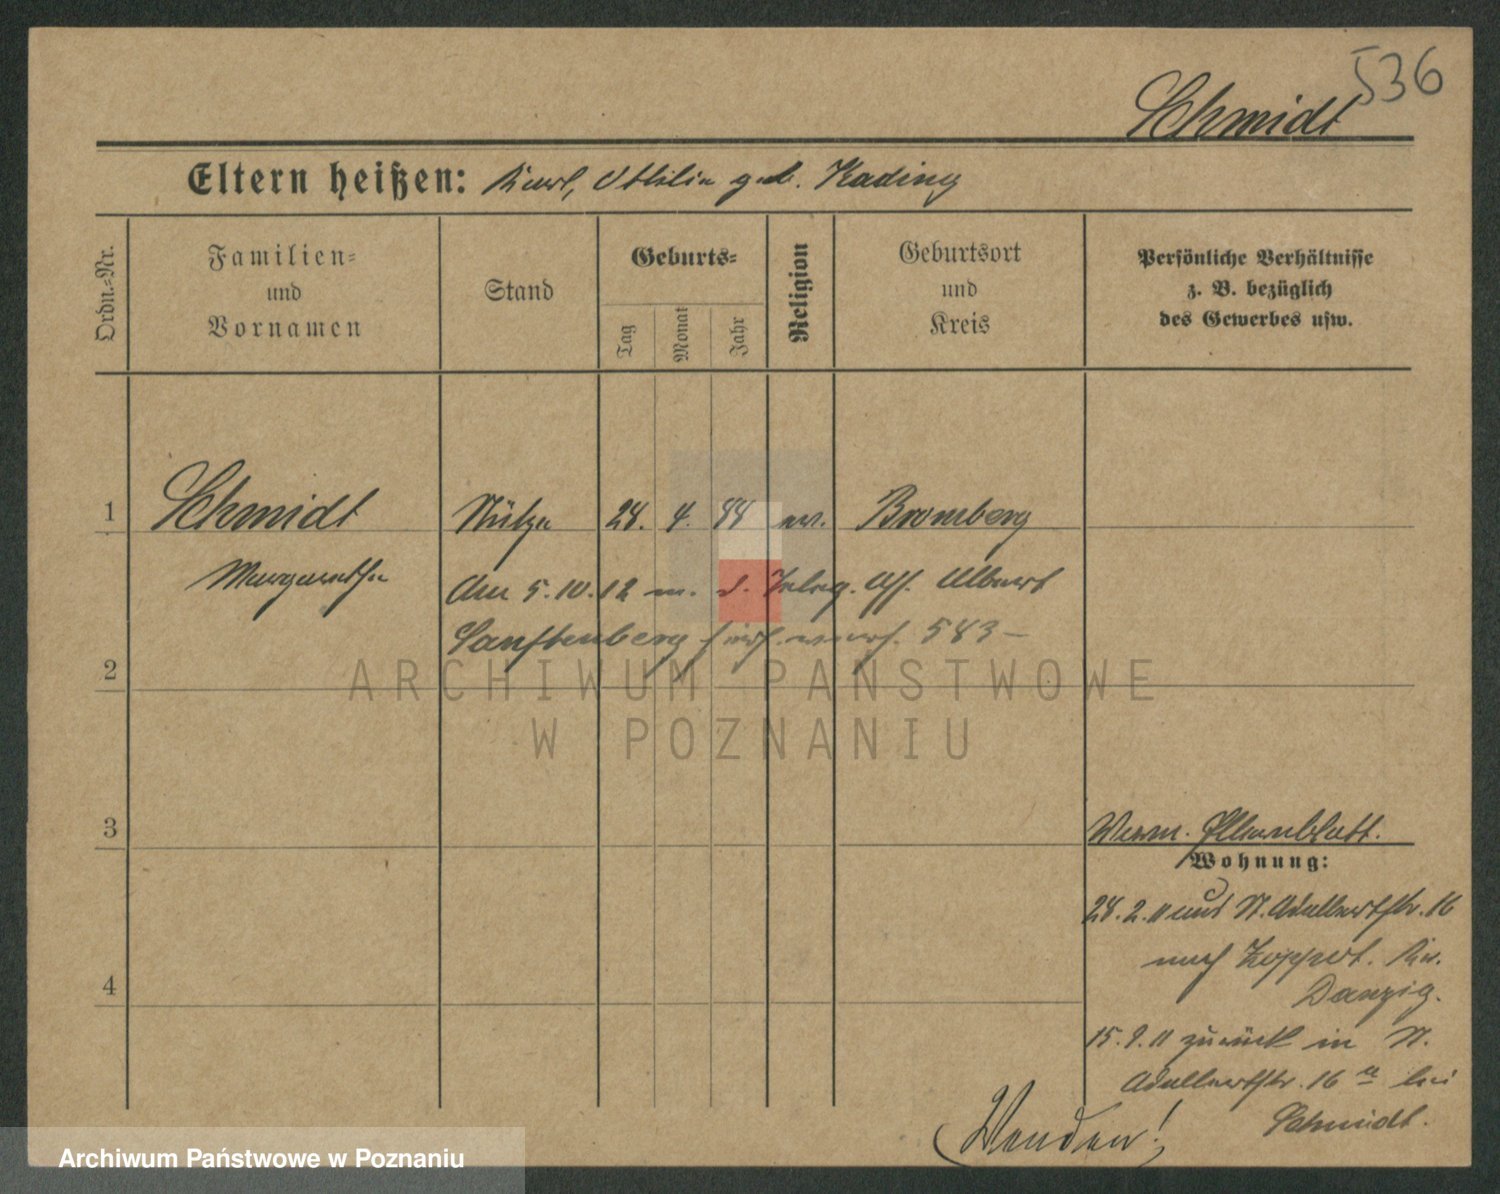 536
Schmidt
Eltern heißen: Karl, Ottilie geb. Kading
Ordn.-Nr.
Familien-
und
Vornamen
Stand
Geburts-
Tag
Monat
Jahr
Religion
Geburtsort
und
Kreis
Persönliche Verhältnisse
z. B. bezüglich
des Gewerbes usw.
1 Schmidt Stütze 28. 4. 88 ev. Bromberg
Margarethe
Am 5.10.12 m. d. Teleg. Ass. Albert
Sanftenberg 583 –
2
ARCHIWUM PAŃSTWOWE
W POZNANIU
3
Verm. Elternblatt.
Wohnung:
28.2.11 aus St. Adalbertstr. 16
nach Zoppot. Kr.
Danzig.
4
15.9.11 zurück in St.
Adalbertstr. 16 a bei
Schmidt.
Wenden!
Archiwum Państwowe w Poznaniu